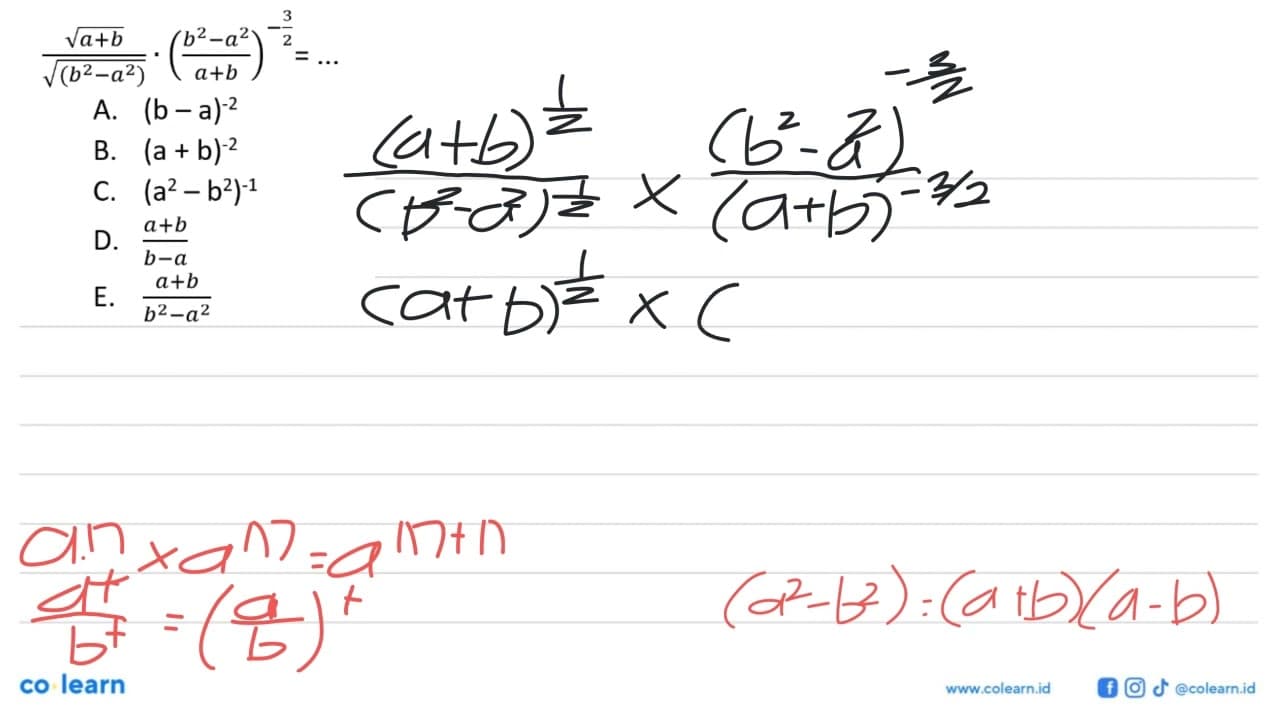 √(a+b)/√((b²−a²)) · ((b²−a²)/(a+b))^(−3/2) = ...
A. (b – a)⁻²
B. (a + b)⁻²
C. (a² – b²)⁻¹
D. (a+b)/(b−a)
E. (a+b)/(b²−a²)
(a+b)^(1/2)/(b²-a²)^(1/2) × (b²-a²)^(-3/2)/(a+b)^(-3/2)
(a+b)^(1/2) × (
a^m × a^n = a^(m+n)
a^t/b^t = (a/b)^t
(a²-b²) = (a+b)(a-b)
co learn
www.colearn.id
@colearn.id